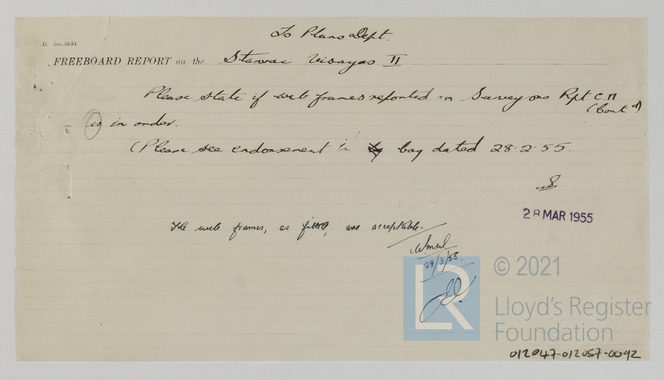 To Plans Dept.
FREEBOARD REPORT on the Stanvac Visayas II
Please state if web frames reported in Surveyors Rpt C.11
(Cont'd)
is in order.
(Please see endorsement in bay dated 28.2.55.
28 MAR 1955
The web frames, as fitted, are acceptable.
29/3/55.
LR
© 2021
Lloyd's Register
Foundation
012047-012057-0092